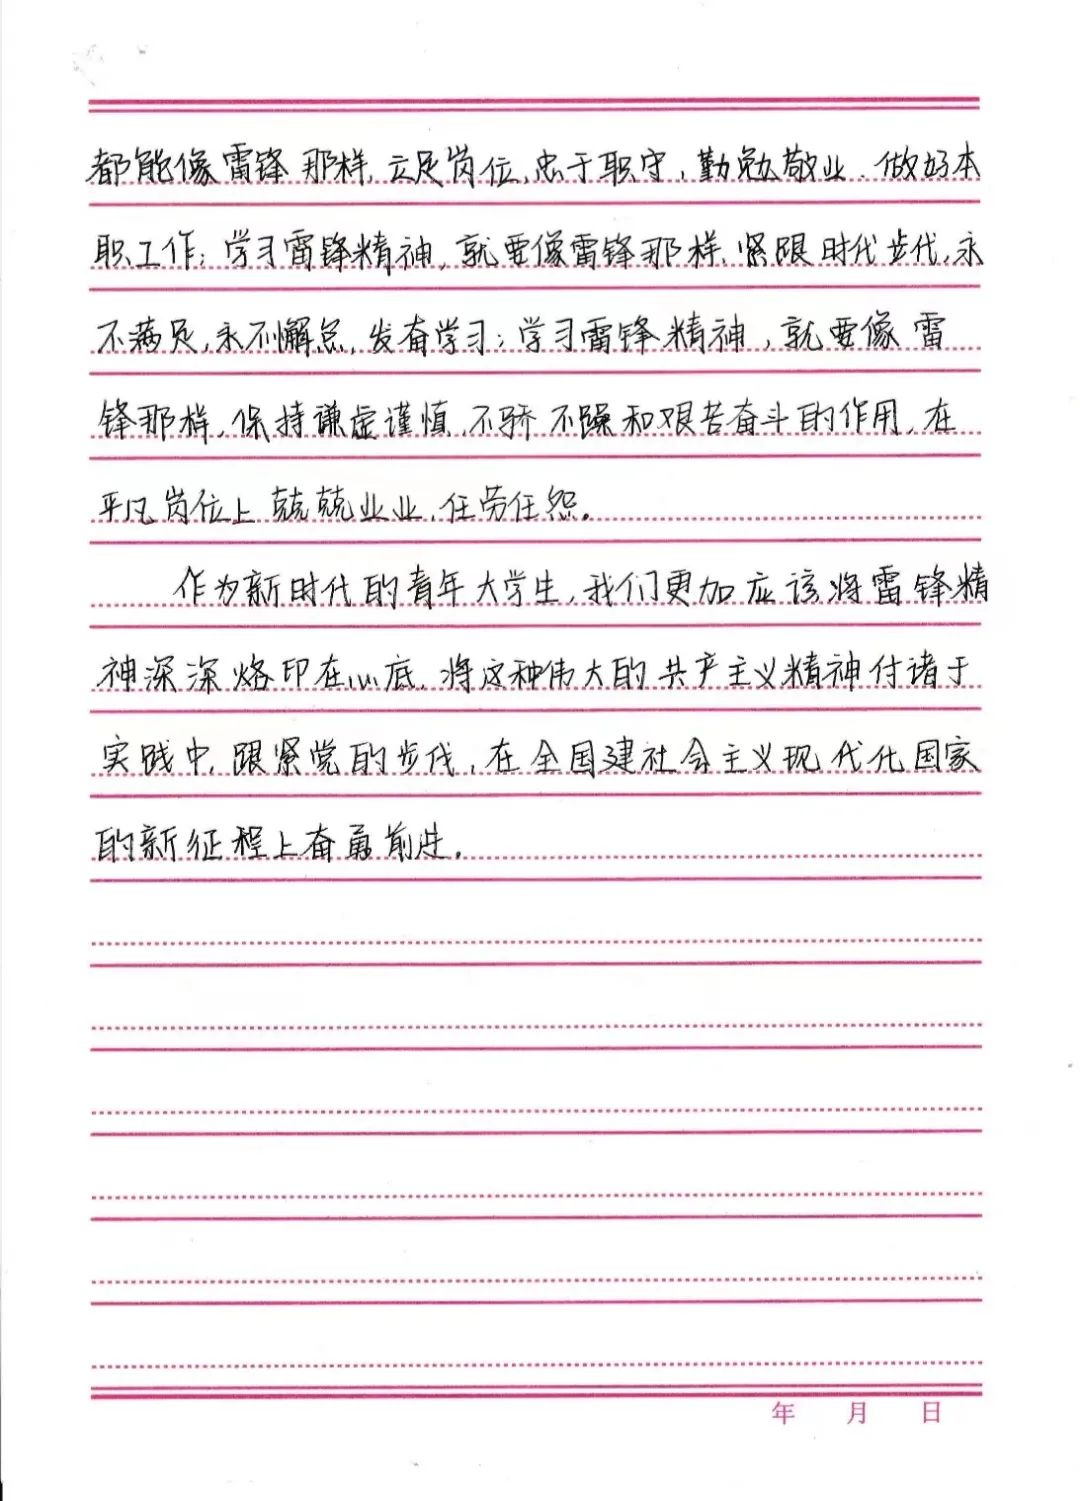 都能像雷锋那样,立足岗位,忠于职守,勤勉敬业.做好本
职工作;学习雷锋精神,就要像雷锋那样,紧跟时代步伐,永
不满足,永不懈怠,发奋学习;学习雷锋精神,就要像雷
锋那样,保持谦虚谨慎,不骄不躁和艰苦奋斗的作用,在
平凡岗位上兢兢业业,任劳任怨.
作为新时代的青年大学生,我们更加应该将雷锋精
神深深烙印在心底,将这种伟大的共产主义精神付诸于
实践中,跟紧党的步伐,在全国建社会主义现代化国家
的新征程上奋勇前进.
年 月 日